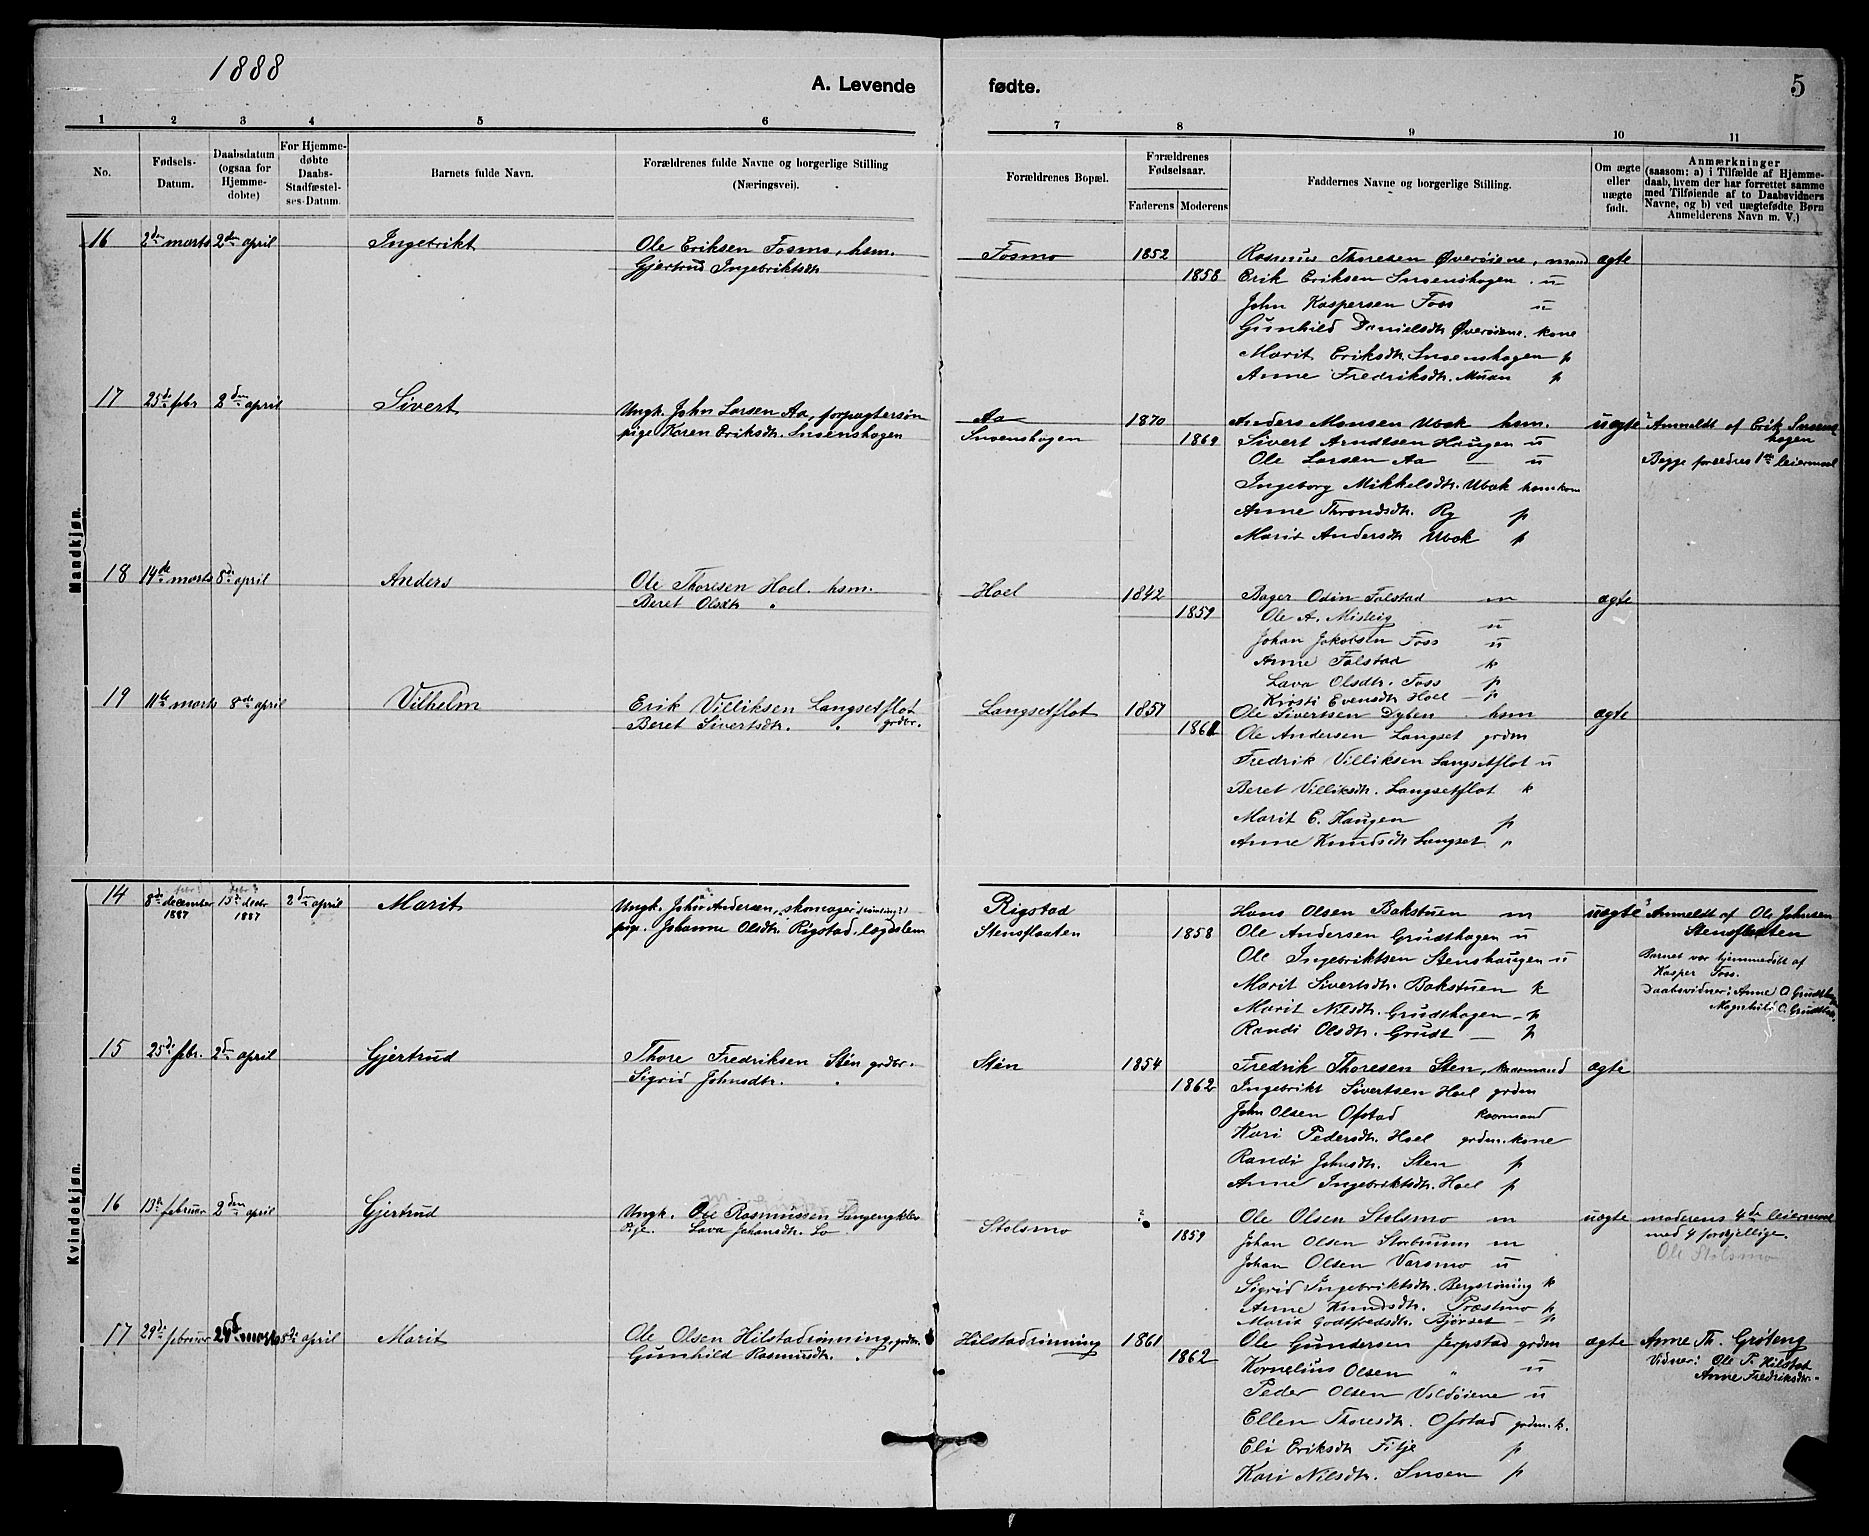 1888
A. Levende fødte.
5
1 2 3 4 5 6 7 8 9 10 11
No.
Fødsels-
Datum.
Daabsdatum
(ogsaa for
Hjemme-
døbte)
For Hjemme-
døbte
Daabs-
Stadfæstel-
ses-Datum.
Barnets fulde Navn.
Forældrenes fulde Navne og borgerlige Stilling
(Næringsvei).
Forældrenes Bopæl.
Forældrenes
Fødselsaar.
Faderens Moderens
Faddernes Navne og borgerlige Stilling.
Om ægte
eller
uægte
født.
Anmærkninger
(saasom: a) i Tilfælde af Hjemme-
daab, hvem der har forrettet samme
med Tilføiende af to Daabsvidners
Navne, og b) ved uægtefødte Børn
Anmelderens Navn m. V.)
Mandkjøn.
16 2den marts 2den april Ingebrikt Ole Eriksen Fosmo, hsm. Fosmo 1852 Rasmus Thoresen Øverøiene, mand ægte
Gjertrud Ingebriktsdtr 1858 Erik Eriksen Snoenshagen u
John Kaspersen Foss u
Gunhild Danielsdtr Øverøiene, kone
Marit Eriksdtr. Snoenshagen p
Anne Fredriksdtr. Muan p
17 25de febr 2den april Sivert Ungk. John Larsen Aa, forpagtersøn Aa 1870 Anders Monsen Ubok hsm. uægte Anmeldt af Erik Snoens
pige Karen Eriksdtr. Snoenshagen Snoenshagen 1869 Sivert Arndtsen Haugen u hagen
Ole Larsen Aa — u Begge forældres 1ste leiermaal
Ingeborg Mikkelsdtr. Ubok hsm kone
Anne Throndsdtr. Ry p
Marit Andersdtr Ubok p
18 14de marts 8de april Anders Ole Thoresen Hoel. hsm. Hoel 1842 Bager Odin Falstad m ægte
Beret Olsdtr " 1859 Ole A. Mislig u
Johan Jakobsen Foss u
Anne Falstad k
Lava Olsdtr. Foss p
Kirsti Evensdtr Hoel — p
19 11te marts 8de april Vilhelm Erik Villiksen Langsetflot Langsetflot 1857 Ole Sivertsen Dyben hsm ægte
Beret Sivertsdtr. " grdbr. 1861 Ole Andersen Langset grdm
Fredrik Villiksen Langsetflot u
Beret Villiksdtr. Langsetflot k
Marit E. Haugen p
Anne Knudsdtr Langset "
Kvindekjøn.
febr? febr?
14 8de december 15de decbr 2den april Marit Ungk. John Andersen, skomager Rigstad Hans Olsen Bakstuen m uægte Anmeldt af Ole Johnsen
1887 1887 pige. Johanne Olsdtr. Rigstad. lægdslem Stensflaaten 1858 Ole Andersen Grudthagen u Stensflaaten
Ole Ingebriktsen Stenshaugen u Barnet var hjemmedøbt af
Marit Sivertsdtr. Bakstuen k Kasper Foss.
Marit Nilsdtr. Grudthagen — p Daabsvidner: Anne O. Grudthagen
Randi Olsdtr. Grudt — p Magnhild O. Grudthagen
15 25de febr. 2den april Gjertrud Thore Fredriksen Stén grdbr. Stén 1854 Fredrik Thoresen Sten, kaarmand ægte
Sigrid Johnsdtr. " 1862 Ingebrikt Sivertsen Hoel grdm
John Olsen Ofstad kaarmand
Kari Pedersdtr. Hoel grdm. kone
Randi Johnsdtr. Sten p
Anne Ingebriktsdtr. Hoel p
16 13de februar 2den april Gjertrud Ungk. Ole Rasmussen Langengklev Stolsmo ? Ole Olsen Stolsmo m uægte moderens 4de leiermaal
Pige. Lava Johansdtr. Lo 1859 Johan Olsen Storbuum m med 4 forskjellige.
Johan Olsen Varsmo u Ole Stolsmo
Sigrid Ingebriktsdtr. Bergsrøning k
Anne Knudsdtr. Præstmo p
Marit Godtfredsdtr. Bjørset — p
17 29de februar 24de marts 5te april Marit Ole Olsen Hilstadrønning, grdm Hilstadrønning 1861 Ole Gundersen Jerpstad grdm ægte Anne Th. Grøteng
Gunhild Rasmusdtr. " 1862 Kornelius Olsen " u Vidner: Ole P. Hilstad
Peder Olsen Voldøiene u Anne Fredriksdtr.
Ellen Thoresdtr. Ofstad grdm. k.
Eli Eriksdtr Filje p
Kari Nilsdtr. Snoen p